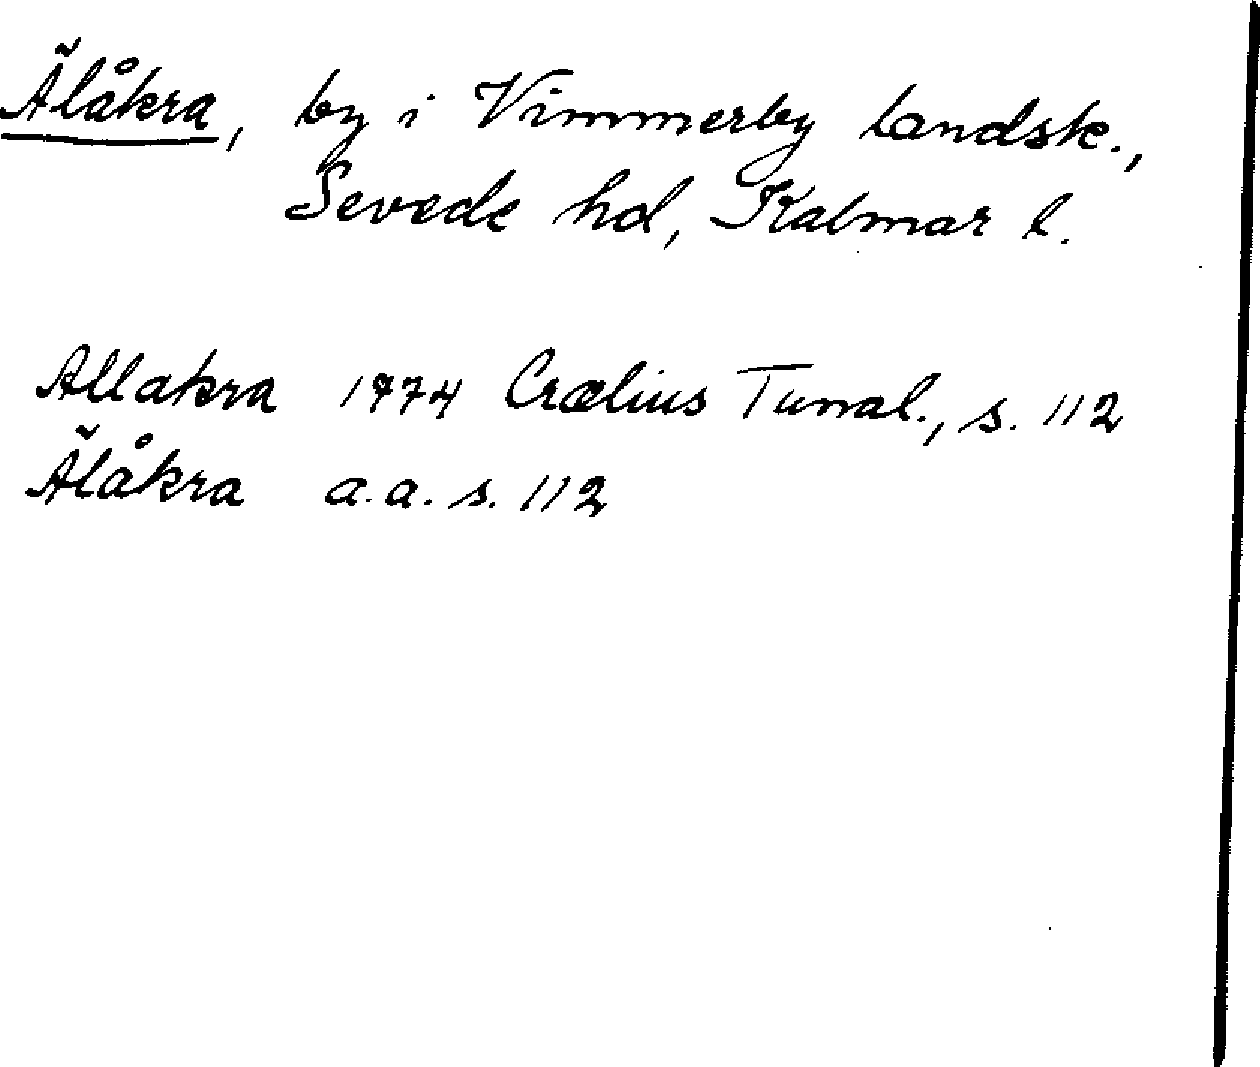 Älåkra, by i Vimmerby landsk.,
Sevede hd, Kalmar l.
Allakra 1774 Crælius Tunal., s. 112
Älåkra a.a. s. 112